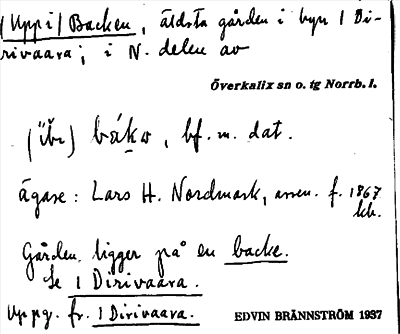 (Uppi) Backen, äldsta gården i byn 1 Di-
rivaara; i N. delen av
Överkalix sn o. tg Norrb. l.
bf. m. dat.
ägare: Lars H. Nordmark, f. 1867
kb.
Gården ligger på en backe.
Se 1 Dirivaara.
Uppg. fr. 1 Dirivaara. EDVIN BRÄNNSTRÖM 1937